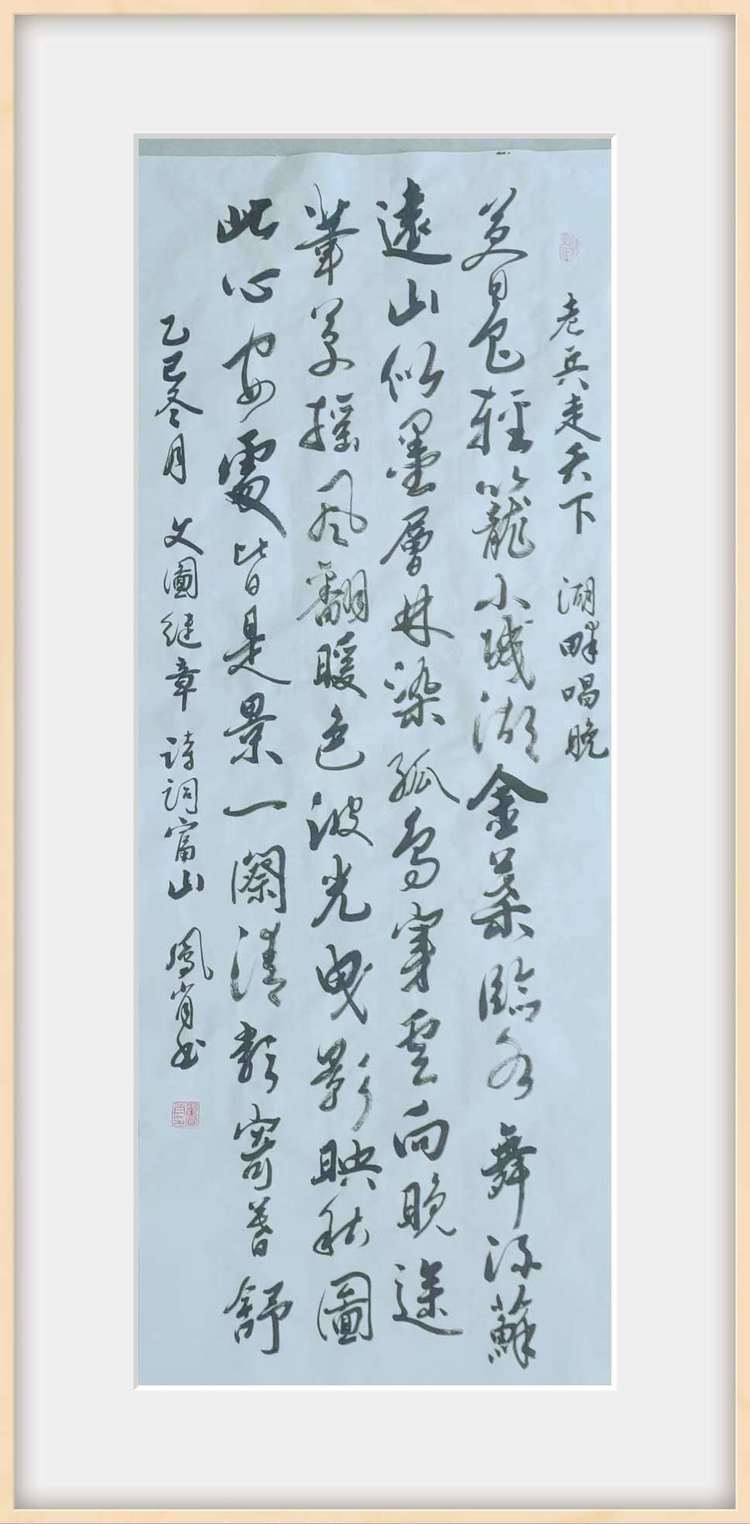 老兵走天下 湖畔唱晚
暮色輕籠小城湖金葉臨水舞流蘇
遠山似墨層林染孤鳥穿雲向晚途
葦草搖風翻暖色波光曳影映秋圖
此心安處皆是景一闋清寄舒
乙巳冬月 文圖繼章 詩詞富山 鳳肖书